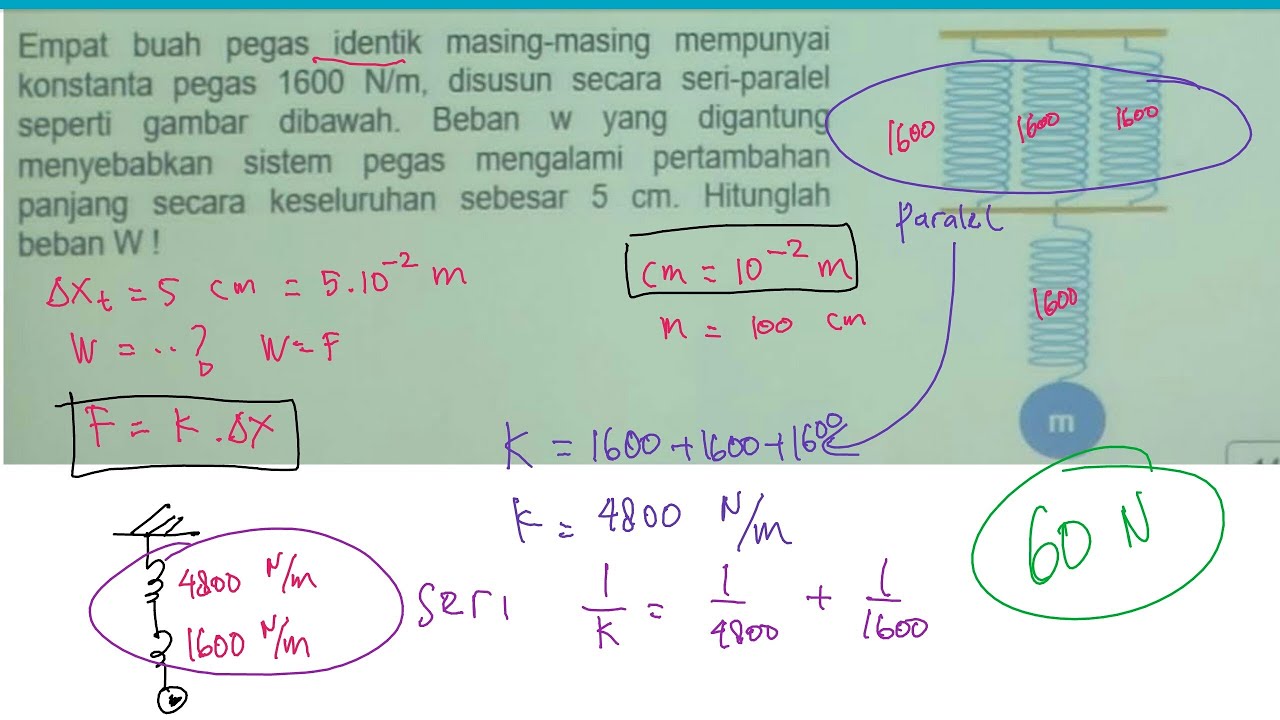 Empat buah pegas identik masing-masing mempunyai
konstanta pegas 1600 N/m, disusun secara seri-paralel
seperti gambar dibawah. Beban w yang digantung
menyebabkan sistem pegas mengalami pertambahan
panjang secara keseluruhan sebesar 5 cm. Hitunglah
beban W !
1600 1600 1600
Paralel
1600
m
Δx_t = 5 cm = 5.10⁻² m
W = ..? W = F
F = K . Δx
cm = 10⁻² m
m = 100 cm
K = 1600 + 1600 + 1600
K = 4800 N/m
4800 N/m
1600 N/m
seri 1/K = 1/4800 + 1/1600
60 N